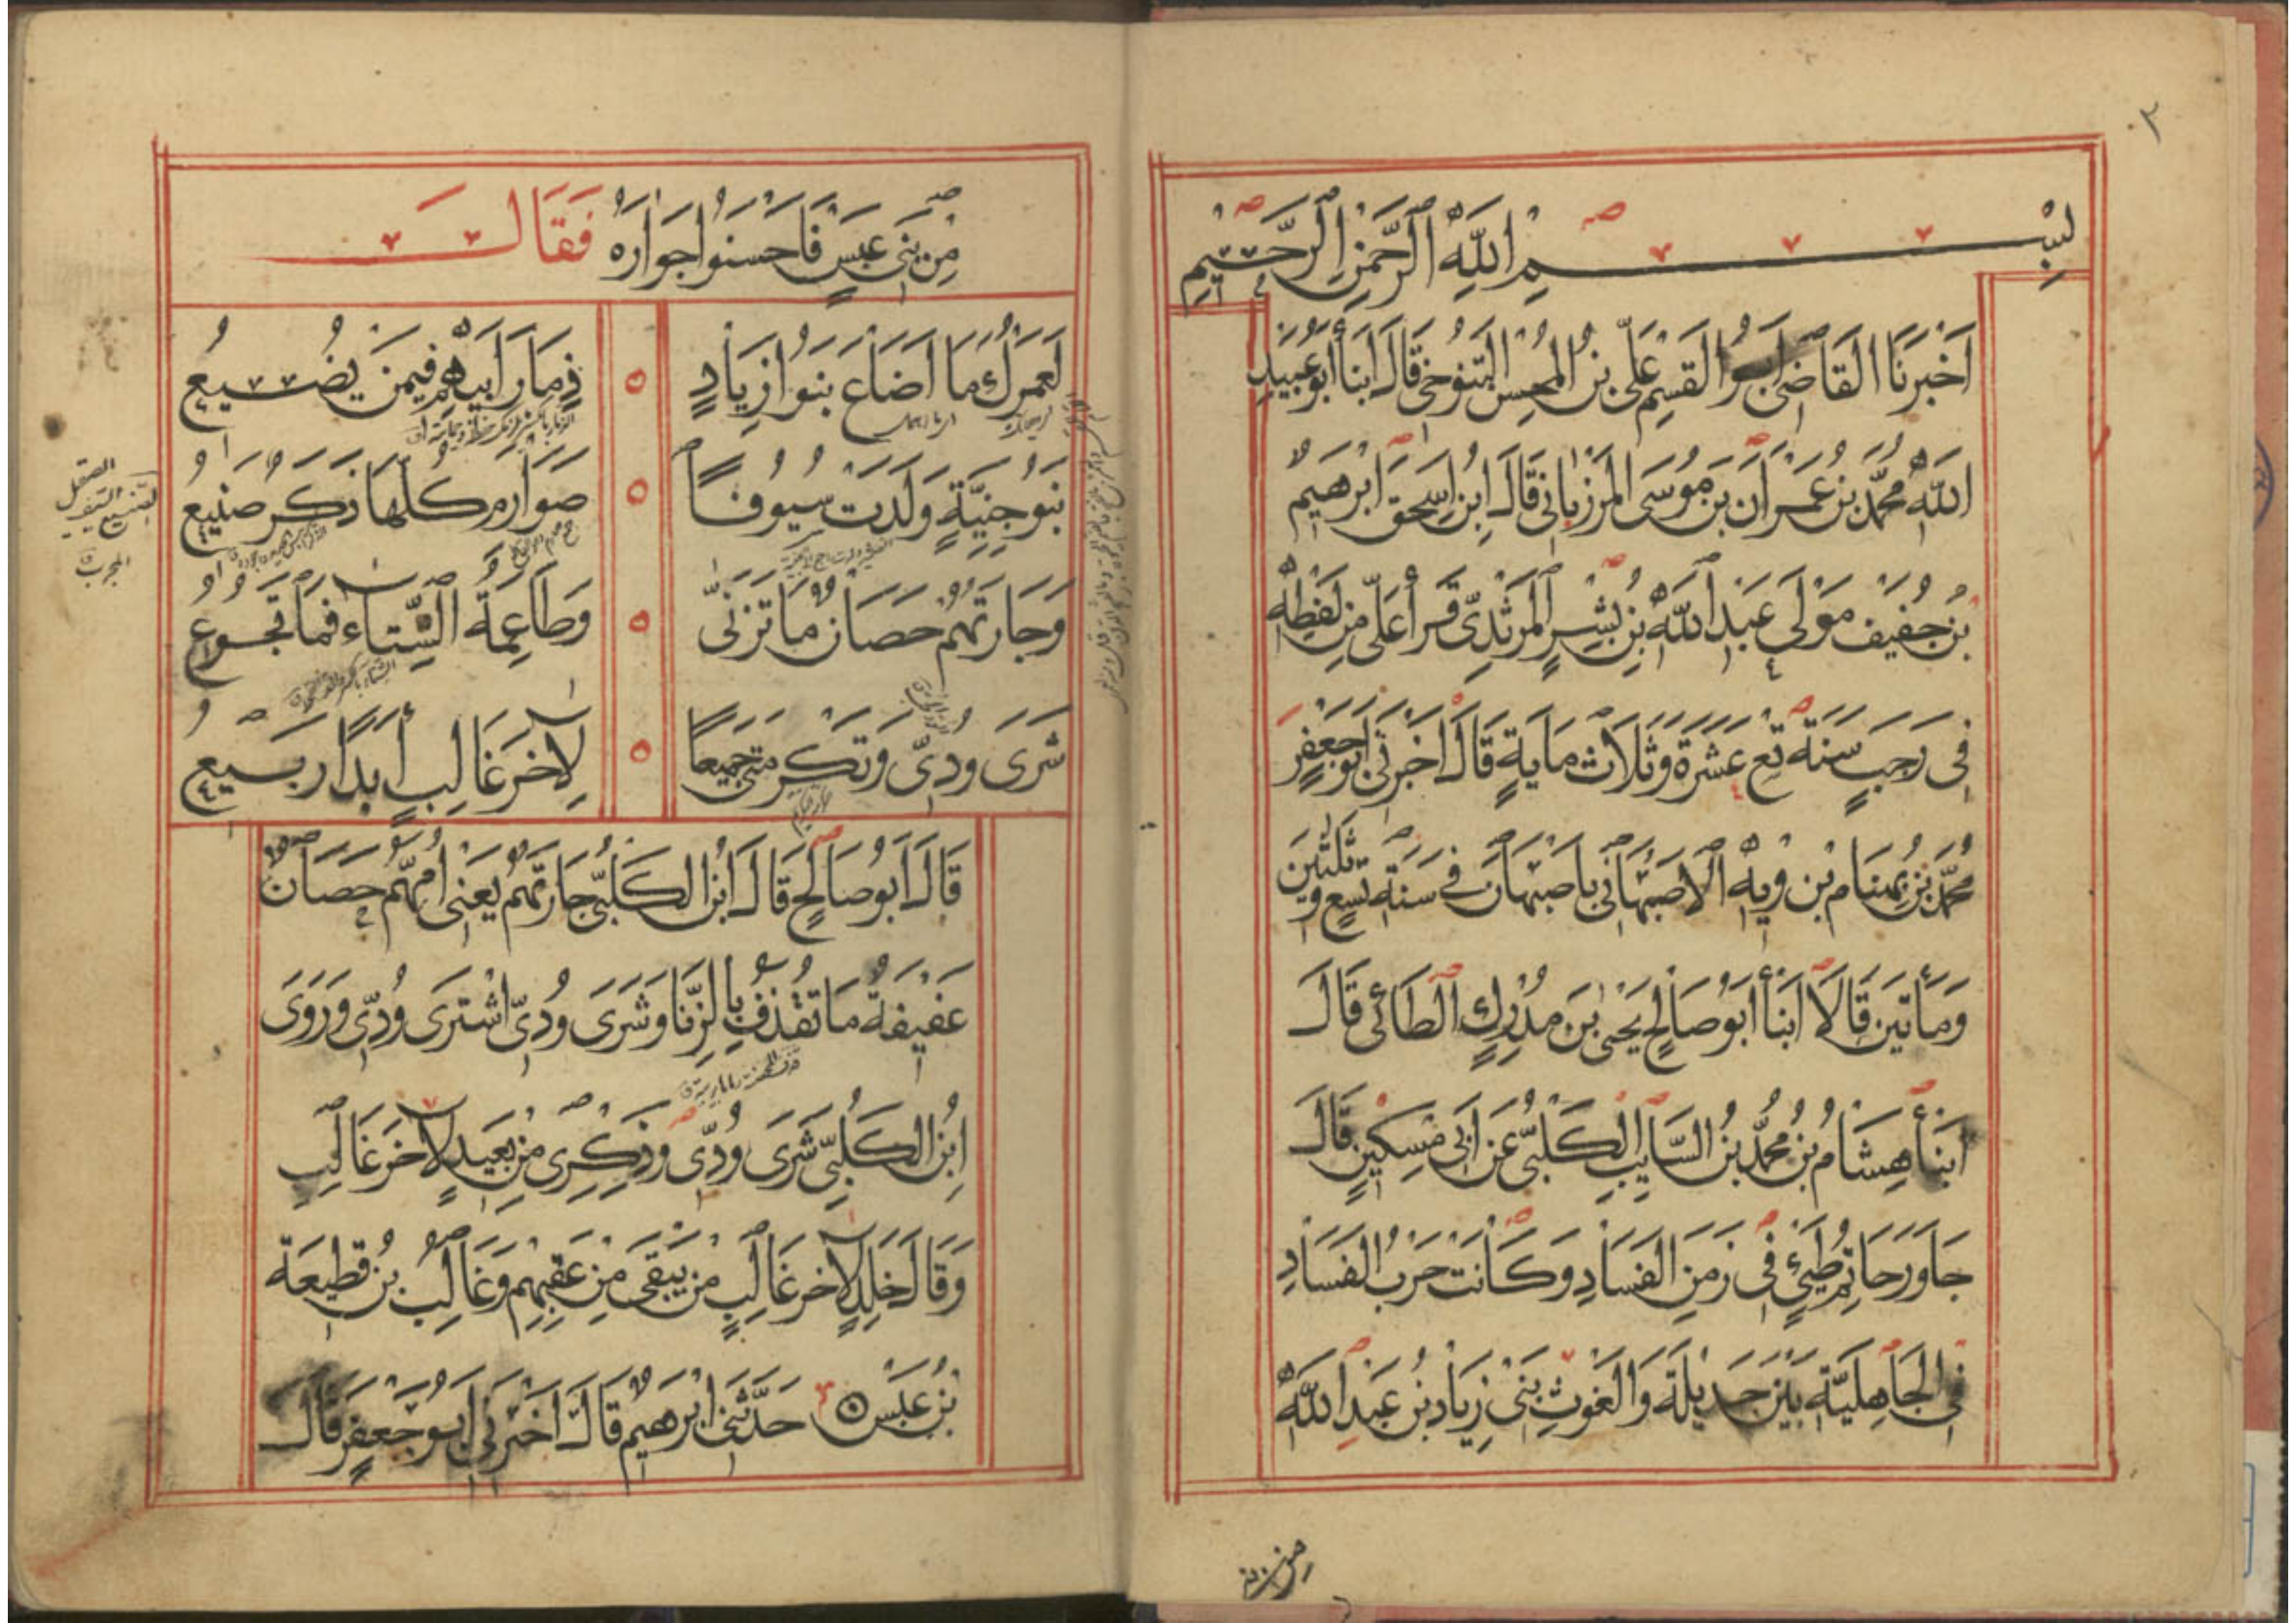 ٢
بسم الله الرحمن الرحيم
اخبرنا القاضي ابو القسم علي بن المحسن التنوخي قال ابنأ ابو عبيد
الله محمد بن عمران بن موسى المرزباني قال ابن اسحق ابرهيم
بن جفيف مولى عبد الله بن بشر المرثدي قرأ علي من لفظه
في رجب سنة تع عشرة وثلاث ماية قال اخبرني ابو جعفر
محمد بن بن وية الاصبهاني باصبهان في سنة تسع وثلثين
ومأتين قالا ابنأ ابو صالح يحيى بن مدرك الطائي قال
ابنأ هشام بن محمد بن السايب الكلبي عن ابي مسكين قال
جاور حاتم طيئ في زمن الفساد وكانت حرب الفساد
في الجاهلية بين جديلة والغوث بني زياد بن عبد الله
من بني
من بني عبس فاحسنوا جواره فقالــت
لعمرك ما اضاع بنوا زياد ○ ذمار ابيهم فيمن يضيع
بنو جنية ولدت سيوفا ○ صوارم كلها ذكر صنيع
وجارتهم حصان ما تزنى ○ وطاعمة الشتاء فما تجوع
شرى ودي وتكرمتي جميعا ○ لاخر غالب ابدا ربيع
قال ابو صالح قال ابن الكلبي جارتهم يعني امهم حصان
عفيفة ما تقذف بالزنا وشرى ودي اشترى ودي وروى
ابن الكلبي شرى ودي وذكرى من بعيد لاخر غالب
وقال خالد لاخر غالب من يبقى من عقبهم وغالب بن قطيعة
بن عبس حدثني ابرهيم قال اخبرني ابو جعفر قال